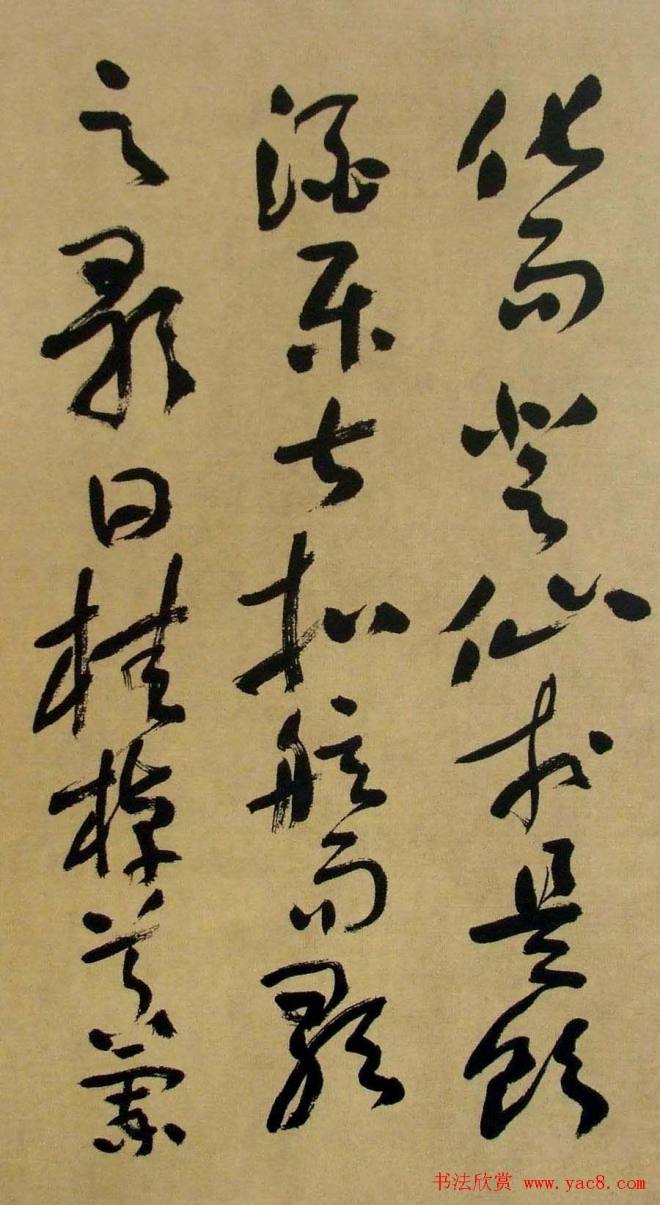 化而登仙於是飲
酒樂甚扣舷而歌
之歌曰桂棹兮蘭
书法欣赏 www.yac8.com